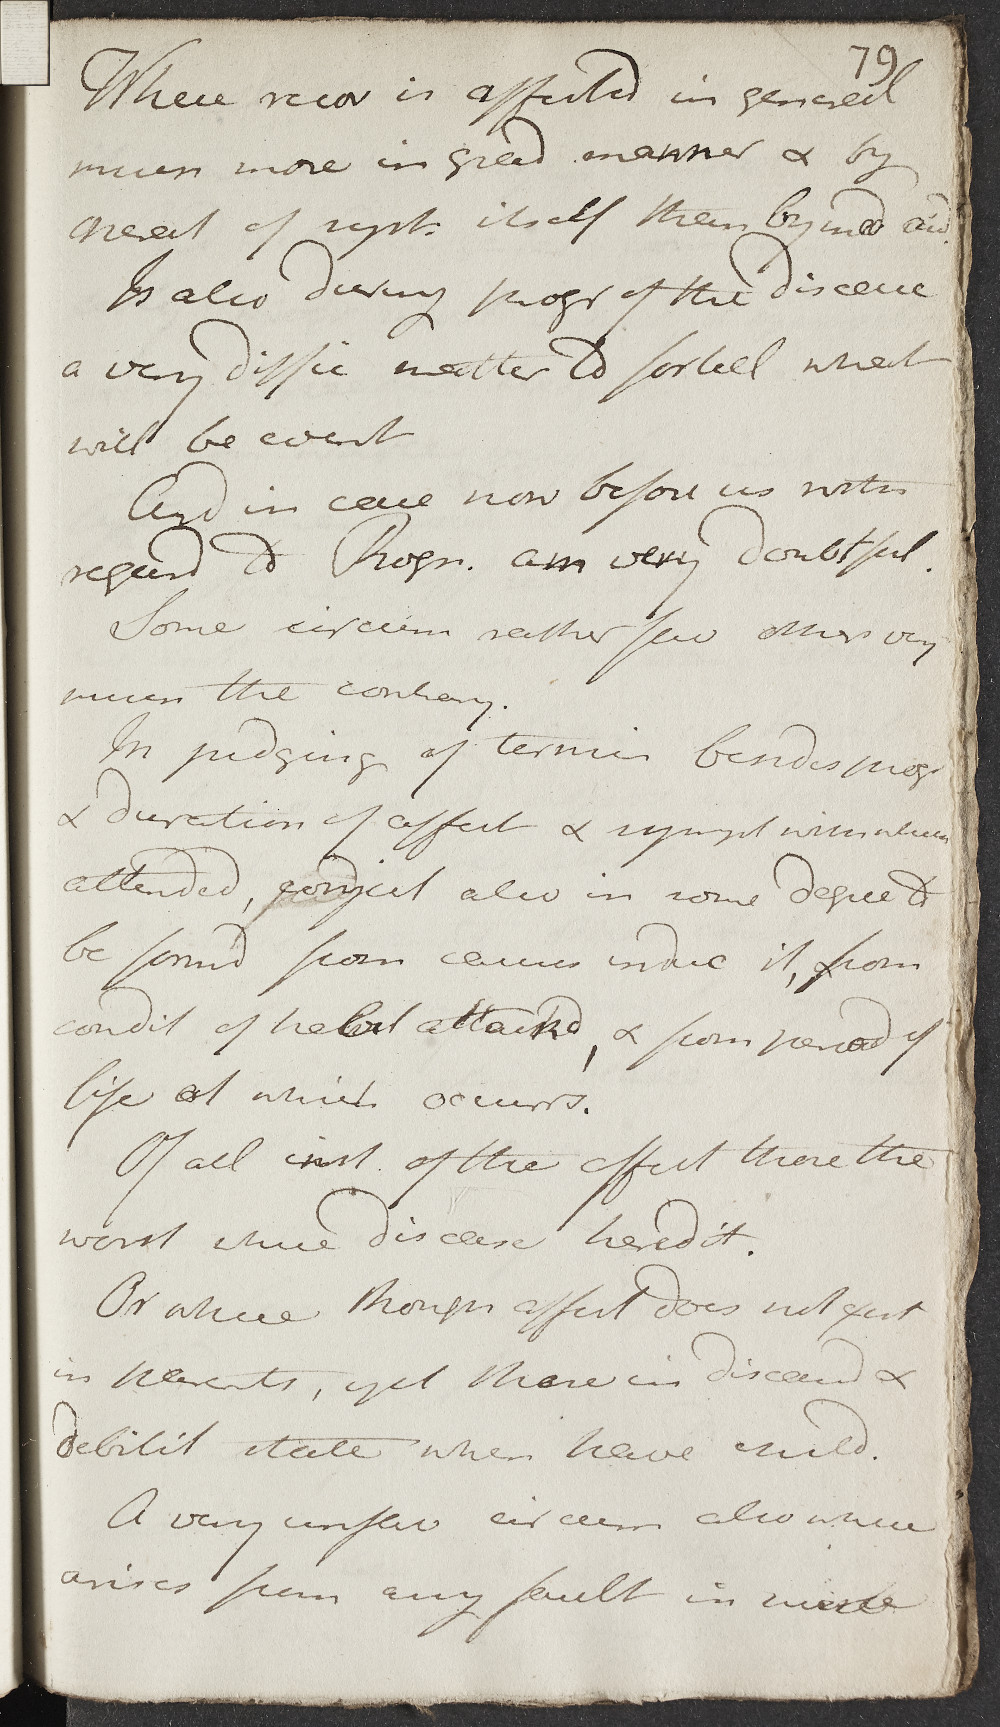 79
Where recov is affected in general
much more in grad manner & by
operat of syst. itself than by med aid.
Is also during progr of the disease
a very diffic matter to fortell what
will be event
And in case now before us with
regard to Progn. am very doubtful.
Some circum rather fav others very
much the contrary.
In judging of termin besides progr
& duration of affect & sympt with which
attended, conject also in some degree to
be formd from causes induc it, from
condit of habit attackd, & from period of
life at which occurrs.
Of all inst. of the affect those the
worst where disease heredit.
Or where though affect does not exist
in parents, yet these in diseasd &
debilit state when have child.
A very unfav circum also where
arises from any fault in